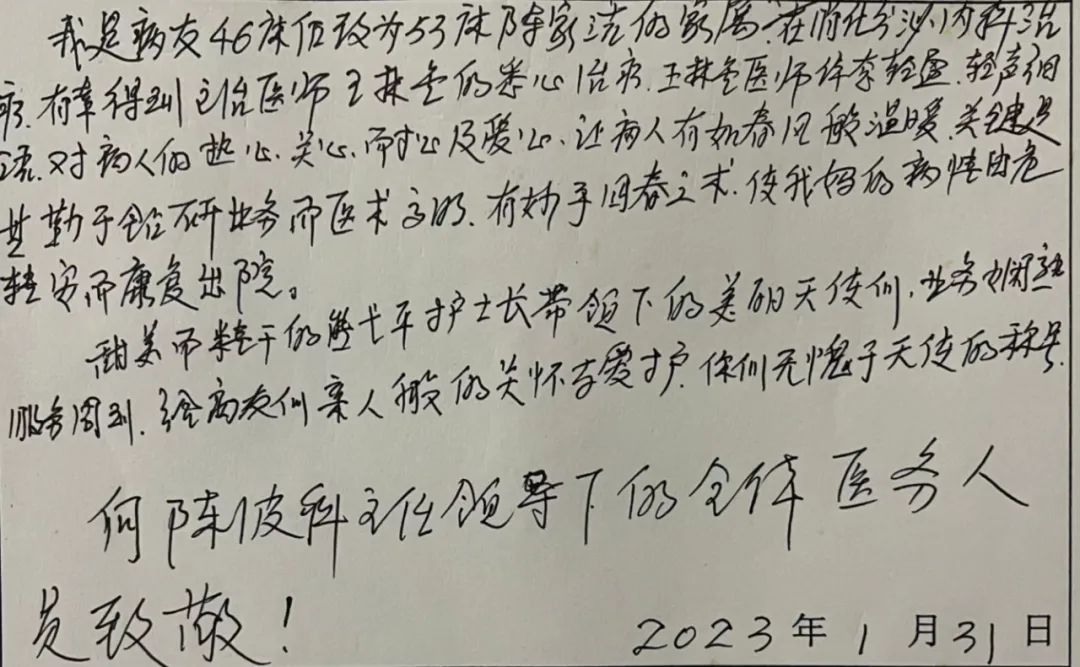 我是病友46床后改为53床陈家洁的家属.在消化分泌内科治
疗.有幸得到主治医师王林金的悉心治疗.王林金医师体态轻盈.轻声细
语.对病人的热心.关心.耐心及爱心.让病人有如春风般温暖.关键是
其勤于钻研业务而医术高明.有妙手回春之术.使我妈的病情由危
转安而康复出院。
甜美而精干的熊七平护士长带领下的美丽天使们.业务娴熟
服务周到.给病友们亲人般的关怀与爱护.你们无愧于天使的称号.
向陈俊科主任领导下的全体医务人
员致敬!
2023年1月31日